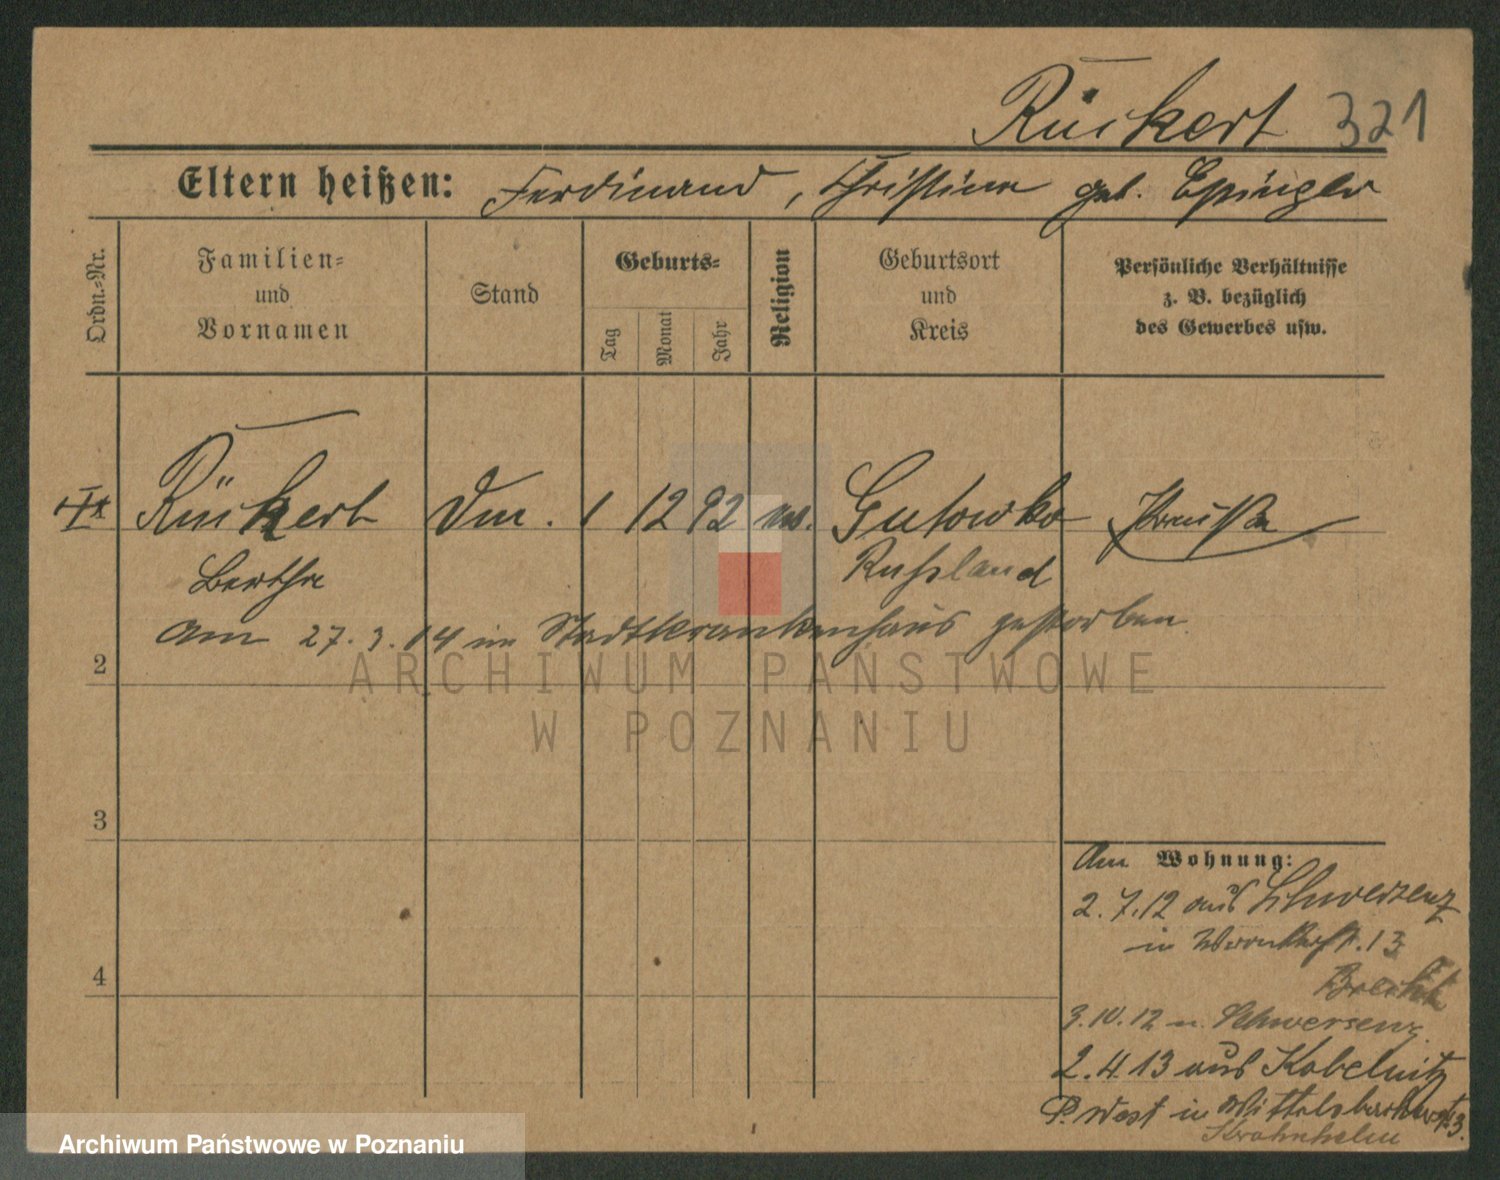 Rückert 321
Eltern heißen: Ferdinand, Christine geb.
Ordn.-Nr.
Familien- und Vornamen
Stand
Geburts-
Tag
Monat
Jahr
Religion
Geburtsort und Kreis
Persönliche Verhältnisse
z. B. bezüglich
des Gewerbes usw.
Rückert 1 12 92 Gutowko Preuße
Bertha Rußland
Am 27. 3. 14 im Stadtkrankenhaus gestorben
2
3
4
Am Wohnung:
2. 7. 12 aus Schwersenz
in 13
3. 10. 12 n. Schwersenz
2. 4. 13 aus Kobelnitz
P. West in Wittelsbacherstr. 3.
ARCHIWUM PAŃSTWOWE
W POZNANIU
Archiwum Państwowe w Poznaniu